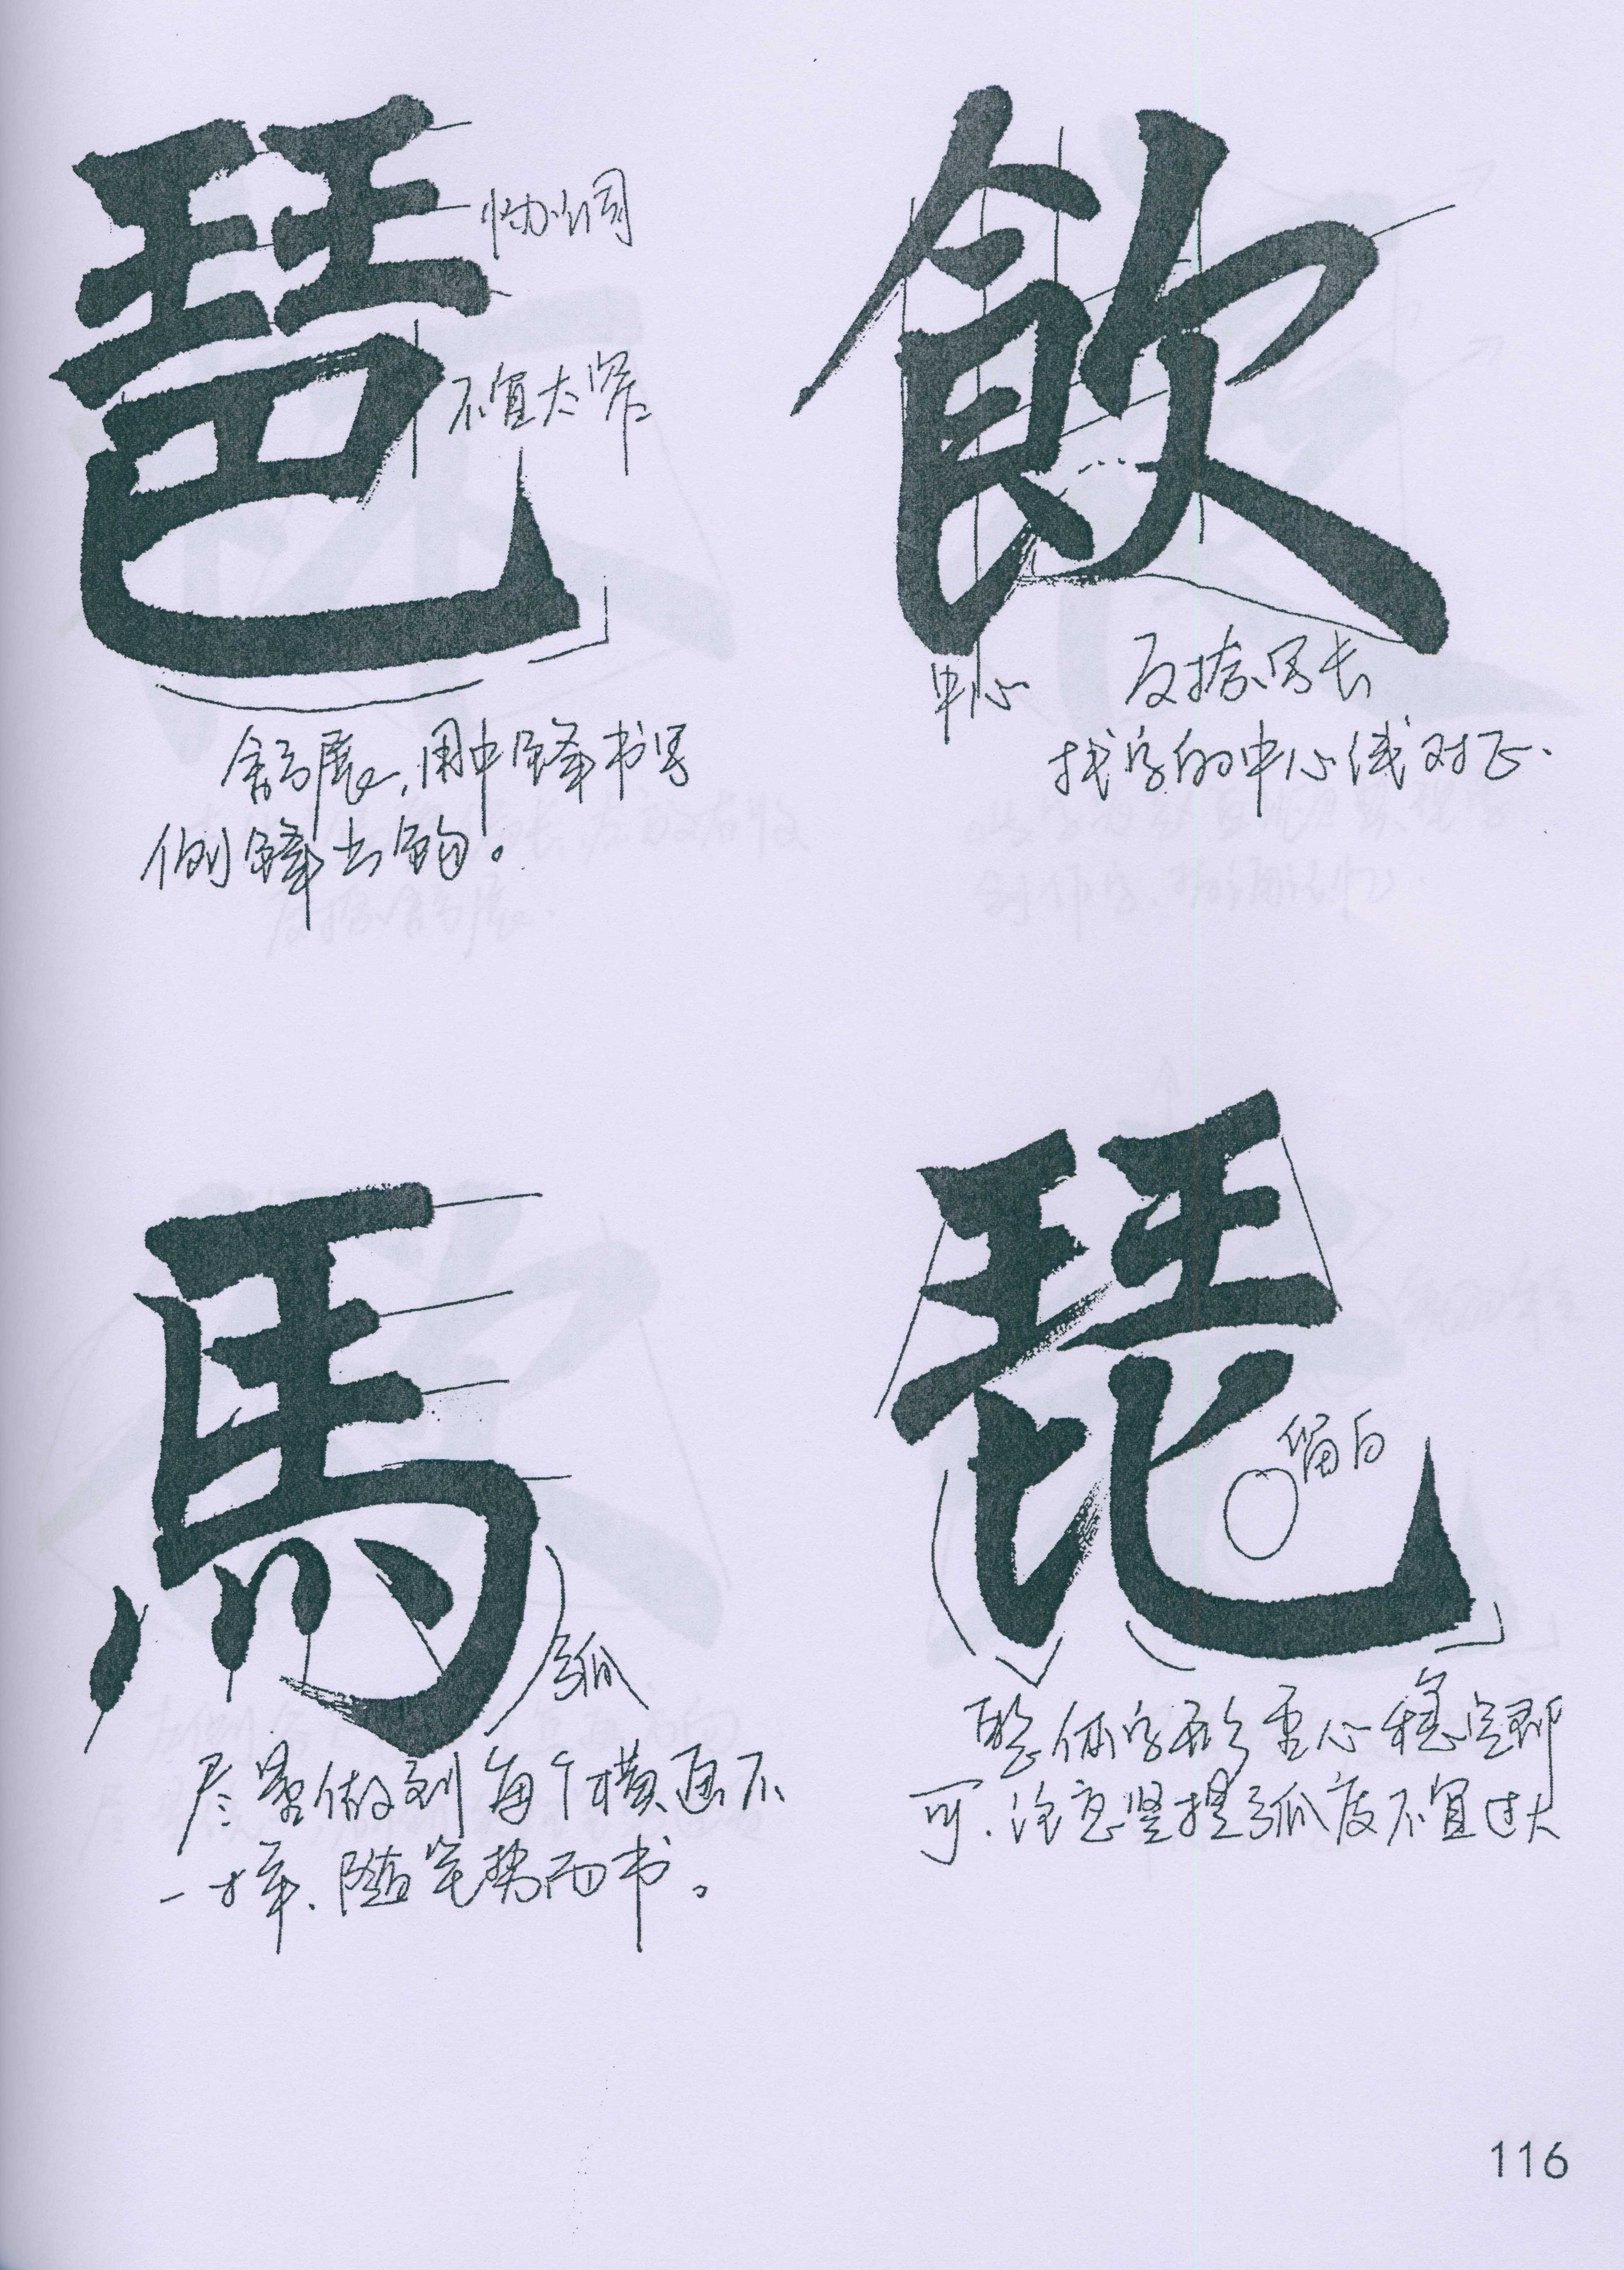 琶
协调
不宜太窄
舒展,用中锋书写
侧锋出钩。
飲
中心
反捺写长
找字的中心线对正.
馬
弧
尽量做到每个横画不
一样.随笔势而书。
琵
留白
整体字形重心稳定即
可.注意竖提弧度不宜过大
116